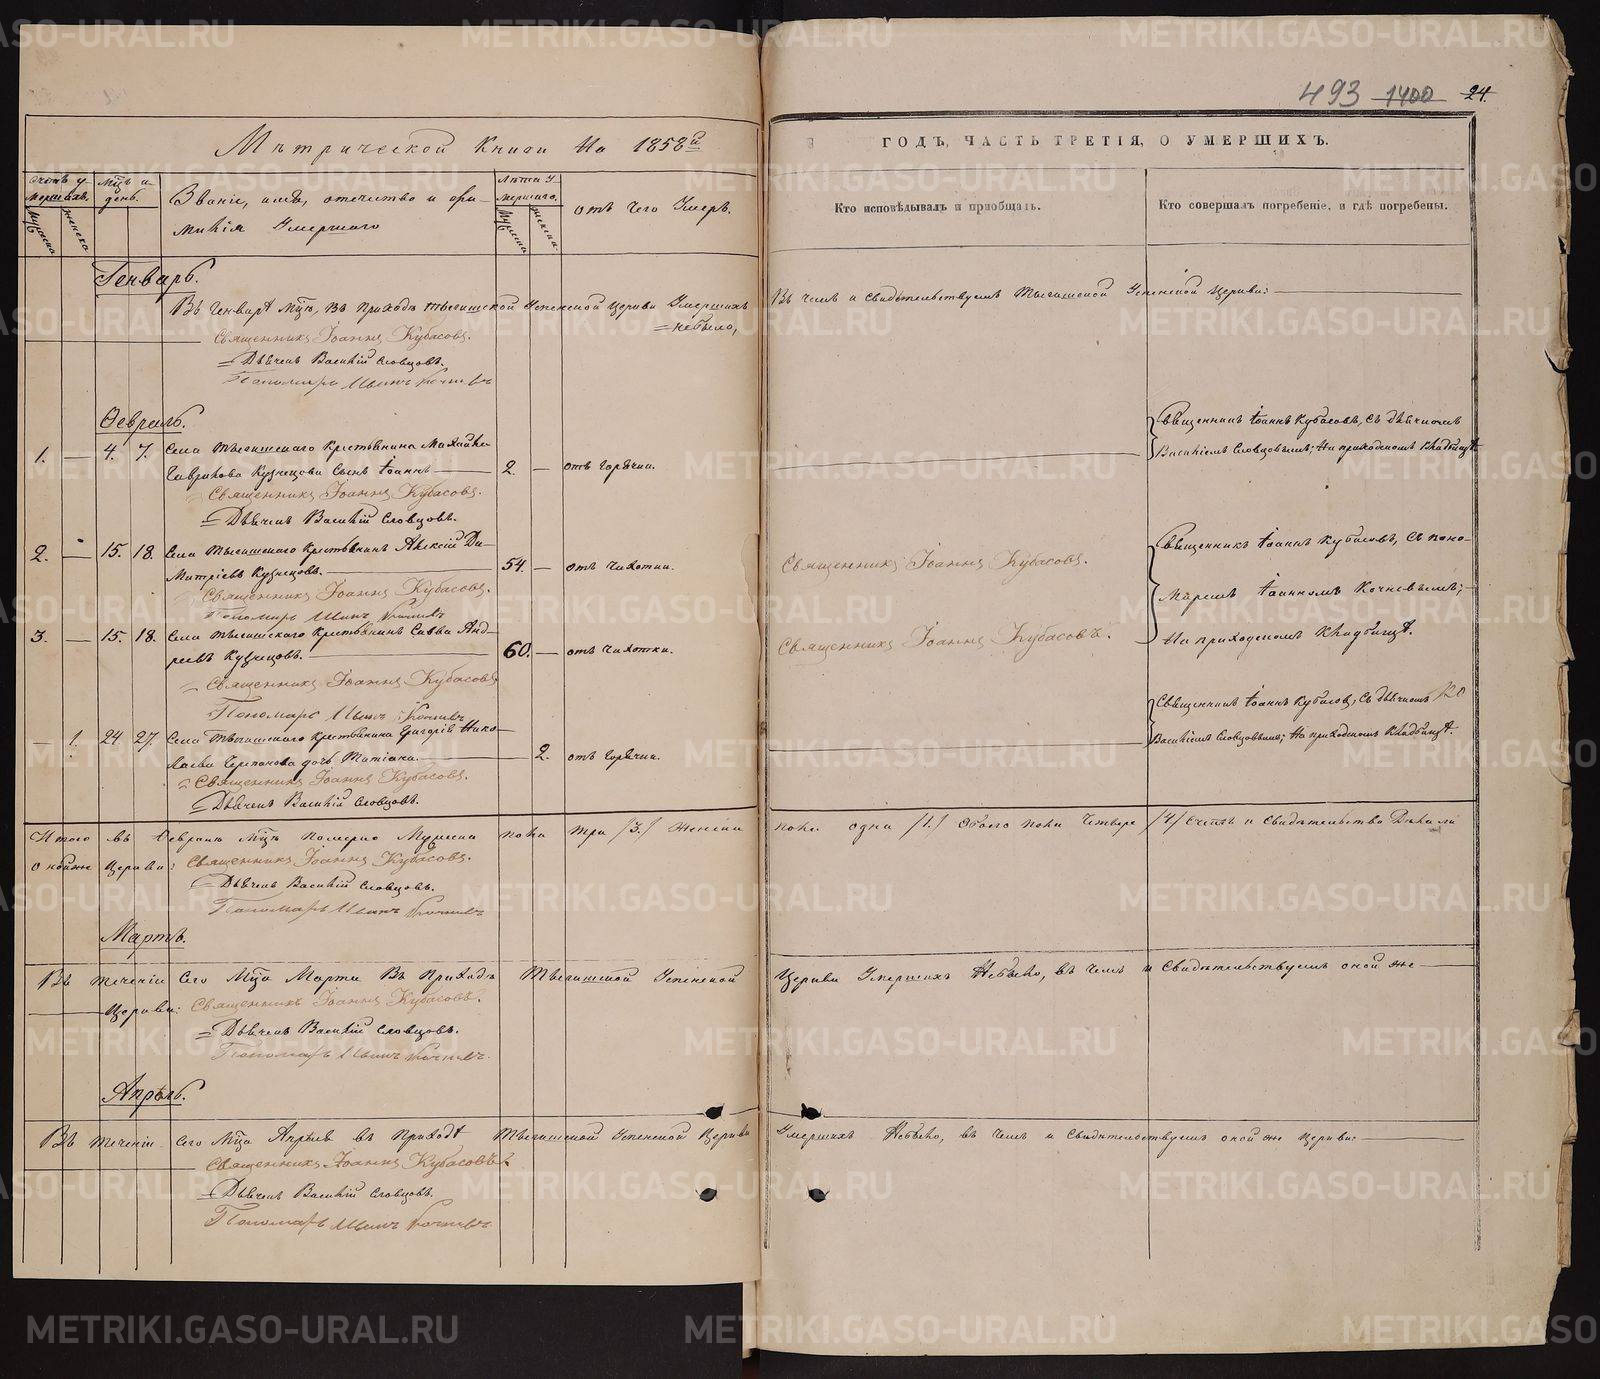 493 1400 24.
Метрической Книги На 1858й
ГОДЪ, ЧАСТЬ ТРЕТІЯ, О УМЕРШИХЪ.
Счетъ у-
мершихъ.
Мужеска
Женска
Мцъ и
день.
Званіе, имя, отечество и фа-
милія Умершаго
Лѣта У-
мершаго.
Мужеска
Женска
отъ Чего Умеръ.
Кто исповѣдывалъ и приобщалъ.
Кто совершалъ погребеніе, и гдѣ погребены.
Генварь.
Въ Генварѣ Мцѣ, въ Приходѣ Тыгишской Успенской Церкви Умершихъ
небыло,
Въ чемъ и свидѣтельствуемъ Тыгишской Успенской Церкви:
Священникъ Іоаннъ Кубасовъ.
Дьячекъ Василій Словцовъ.
Пономарь Иванъ Кочневъ
Февраль.
1. — 4. 7. Села Тыгишскаго Крестьянина Михайла
Гаврилова Кузнецова Сынъ Іоаннъ — 2. — отъ Горячки.
Священникъ Іоаннъ Кубасовъ, съ дьячкомъ
Василіемъ Словцовымъ; На приходскомъ Кладбищѣ
Священникъ Іоаннъ Кубасовъ.
Дьячекъ Василій Словцовъ.
2. — 15. 18. Села Тыгишскаго Крестьянинъ Алексій Ди-
митріевъ Кузнецовъ. 54. — отъ Чахотки.
Священникъ Іоаннъ Кубасовъ.
Священникъ Іоаннъ Кубасовъ, съ поно-
маремъ Іоанномъ Кочневымъ;
На приходскомъ Кладбищѣ.
Священникъ Іоаннъ Кубасовъ.
Пономарь Иванъ Кочневъ
3. — 15. 18. Села Тыгишскаго Крестьянинъ Савва Анд-
реевъ Кузнецовъ. 60. — отъ Чахотки.
Священникъ Іоаннъ Кубасовъ.
Священникъ Іоаннъ Кубасовъ
Пономарь Иванъ Кочневъ
— 1. 24. 27. Села Тыгишскаго Крестьянина Григорія Нико-
лаева дочь Татіана. — 2. отъ Горячки.
Священникъ Іоаннъ Кубасовъ, съ дьячкомъ
Василіемъ Словцовымъ; На приходскомъ Кладбищѣ.
Священникъ Іоаннъ Кубасовъ.
Дьячекъ Василій Словцовъ.
Итого въ Февралѣ Мцѣ померло Мужеска пола три /3./ Женска пола одна /1./ Обоего пола Четверо /4/ Счетъ и Свидѣтельство Дѣлали
оной же Церкви: Священникъ Іоаннъ Кубасовъ.
Дьячекъ Василій Словцовъ.
Пономарь Иванъ Кочневъ
Мартъ.
Въ теченіи Сего Мца Марта Въ Приходѣ Тыгишской Успенской Церкви Умершихъ Небыло, въ Чемъ и Свидѣтельствуемъ оной же
Церкви: Священникъ Іоаннъ Кубасовъ.
Дьячекъ Василій Словцовъ.
Пономарь Иванъ Кочневъ.
Апрѣль.
Въ теченіи Сего Мца Апрѣля въ Приходѣ Тыгишской Успенской Церкви Умершихъ Небыло, въ Чемъ и Свидѣтельствуемъ оной же Церкви:
Священникъ Іоаннъ Кубасовъ.
Дьячекъ Василій Словцовъ.
Пономарь Иванъ Кочневъ
METRIKI.GASO-URAL.RU